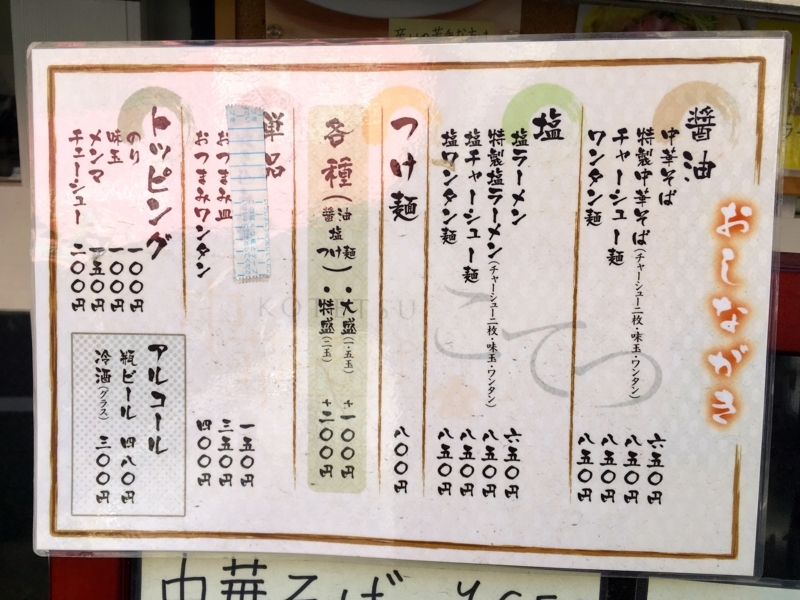 おしながき
醤油
中華そば 六五〇円
特製中華そば(チャーシュー二枚・味玉・ワンタン) 八五〇円
チャーシュー麺 八五〇円
ワンタン麺 八五〇円
塩
塩ラーメン 六五〇円
特製塩ラーメン(チャーシュー二枚・味玉・ワンタン) 八五〇円
塩チャーシュー麺 八五〇円
塩ワンタン麺 八五〇円
つけ麺 八〇〇円
各種(醤油 塩 つけ麺)
・大盛(一・五玉) +一〇〇円
・特盛(二玉) +二〇〇円
単品
一五〇円
おつまみ皿 三五〇円
おつまみワンタン 四〇〇円
トッピング
のり 一〇〇円
味玉 一〇〇円
メンマ 一五〇円
チャーシュー 二〇〇円
アルコール
瓶ビール 四八〇円
冷酒(グラス) 三〇〇円
こてつ
KOTETSU
中華そば